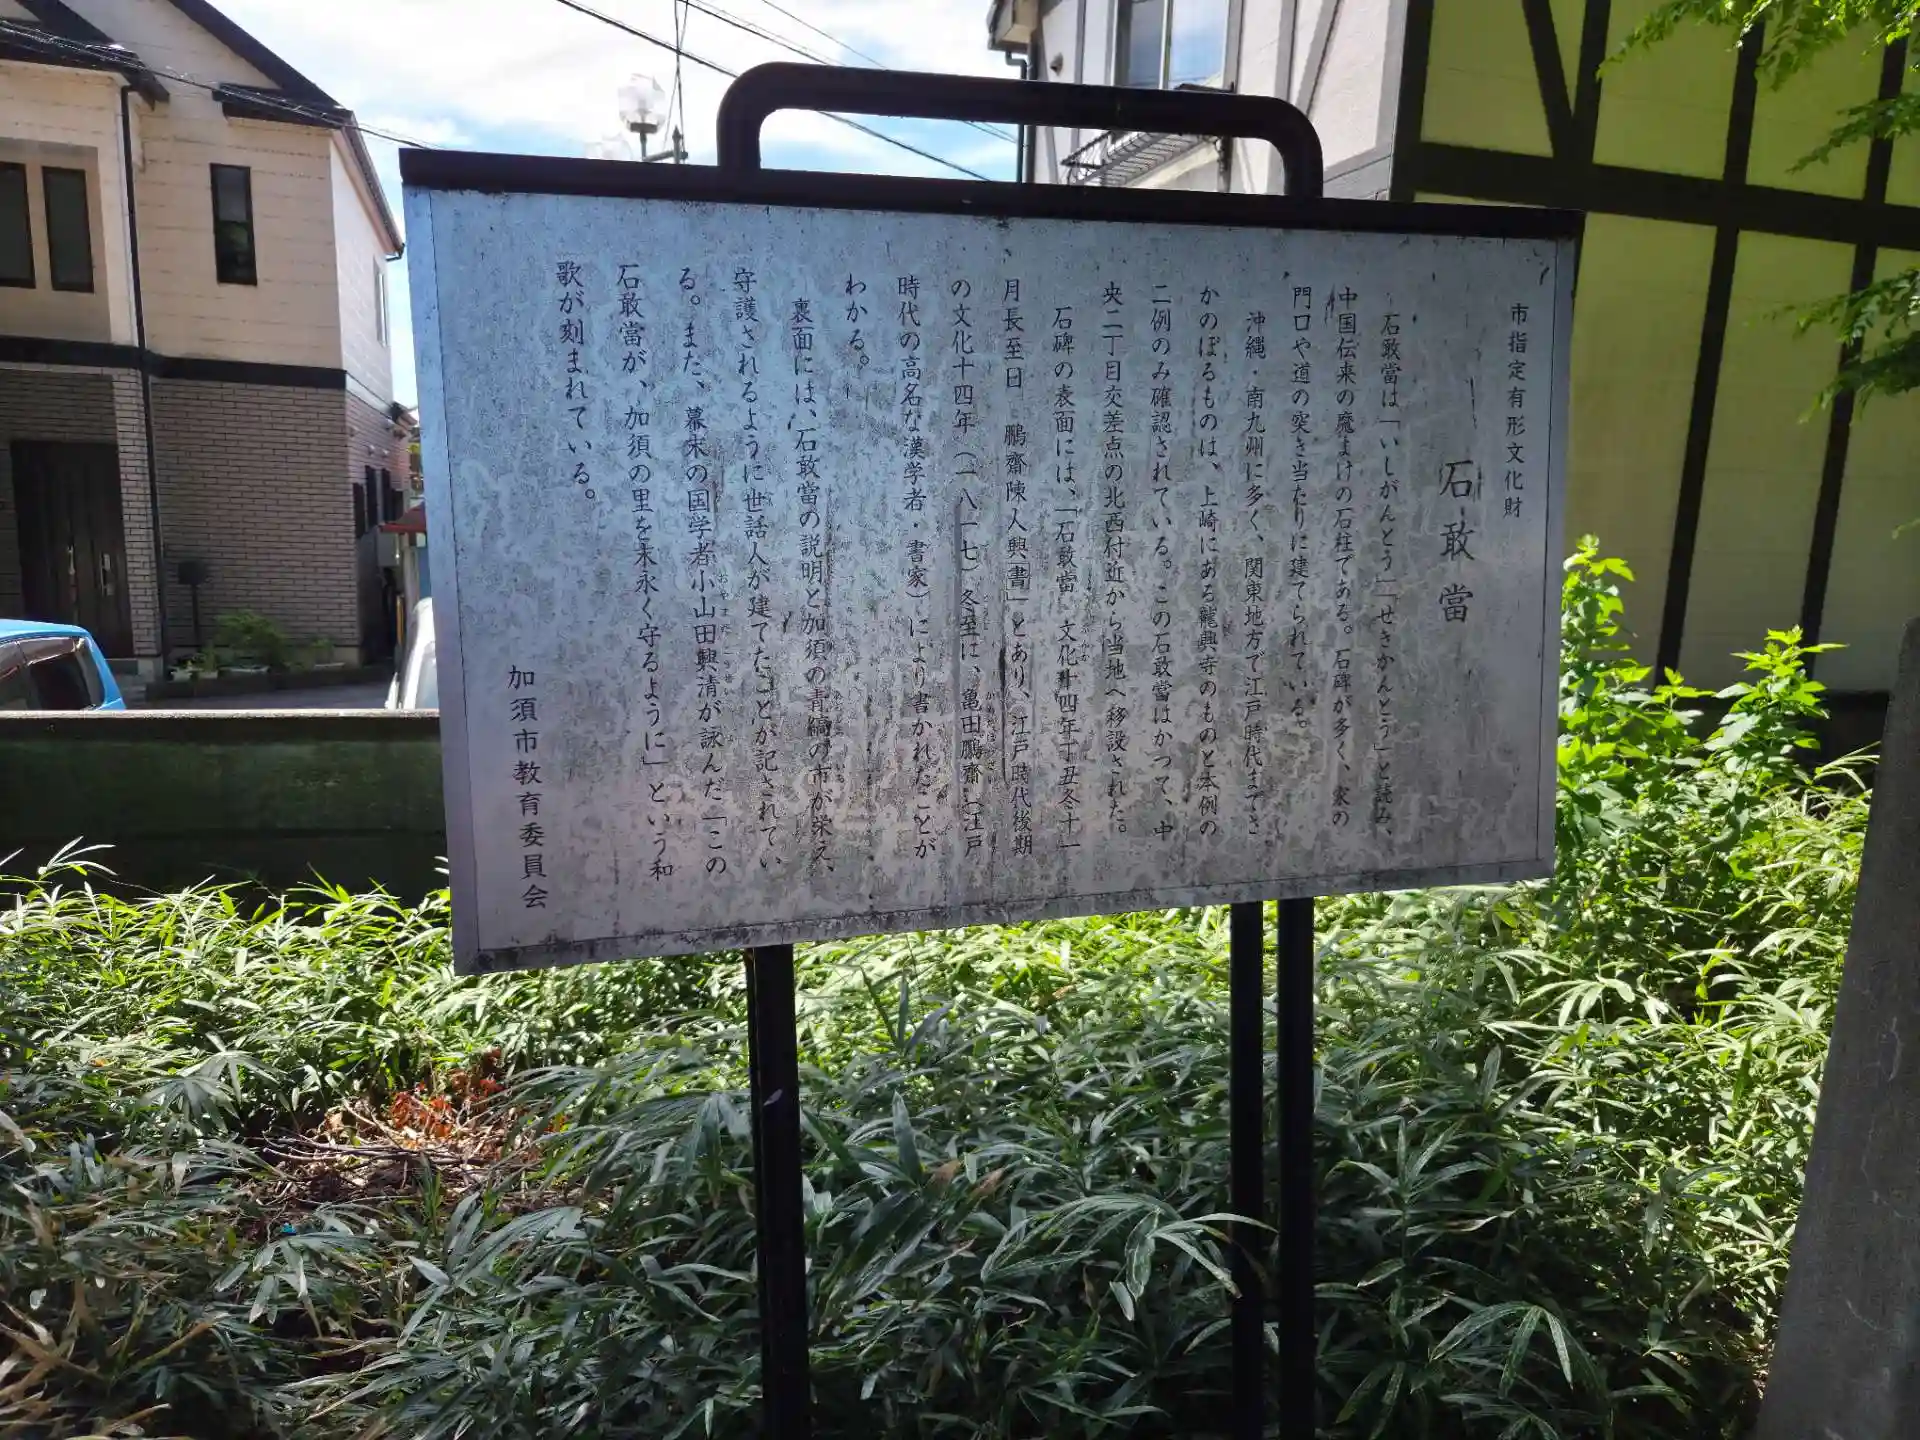 市指定有形文化財
石敢當
石敢當は「いしがんとう」「せきかんとう」と読み、
中国伝来の魔よけの石柱である。石碑が多く、家の
門口や道の突き当たりに建てられている。
沖縄・南九州に多く、関東地方で江戸時代までさ
かのぼるものは、上崎にある龍興寺のものと本例の
二例のみ確認されている。この石敢當はかつて、中
央二丁目交差点の北西付近から当地へ移設された。
石碑の表面には、「石敢當 文化十四年丁丑冬十一
月長至日 鵬齋陳人興書」とあり、江戸時代後期
の文化十四年(一八一七)冬至に、亀田鵬齋(江戸
時代の高名な漢学者・書家)により書かれたことが
わかる。
裏面には、石敢當の説明と加須の青縞の市が栄え、
守護されるように世話人が建てたことが記されてい
る。また、幕末の国学者小山田興清が詠んだ「この
石敢當が、加須の里を末永く守るように」という和
歌が刻まれている。
加須市教育委員会